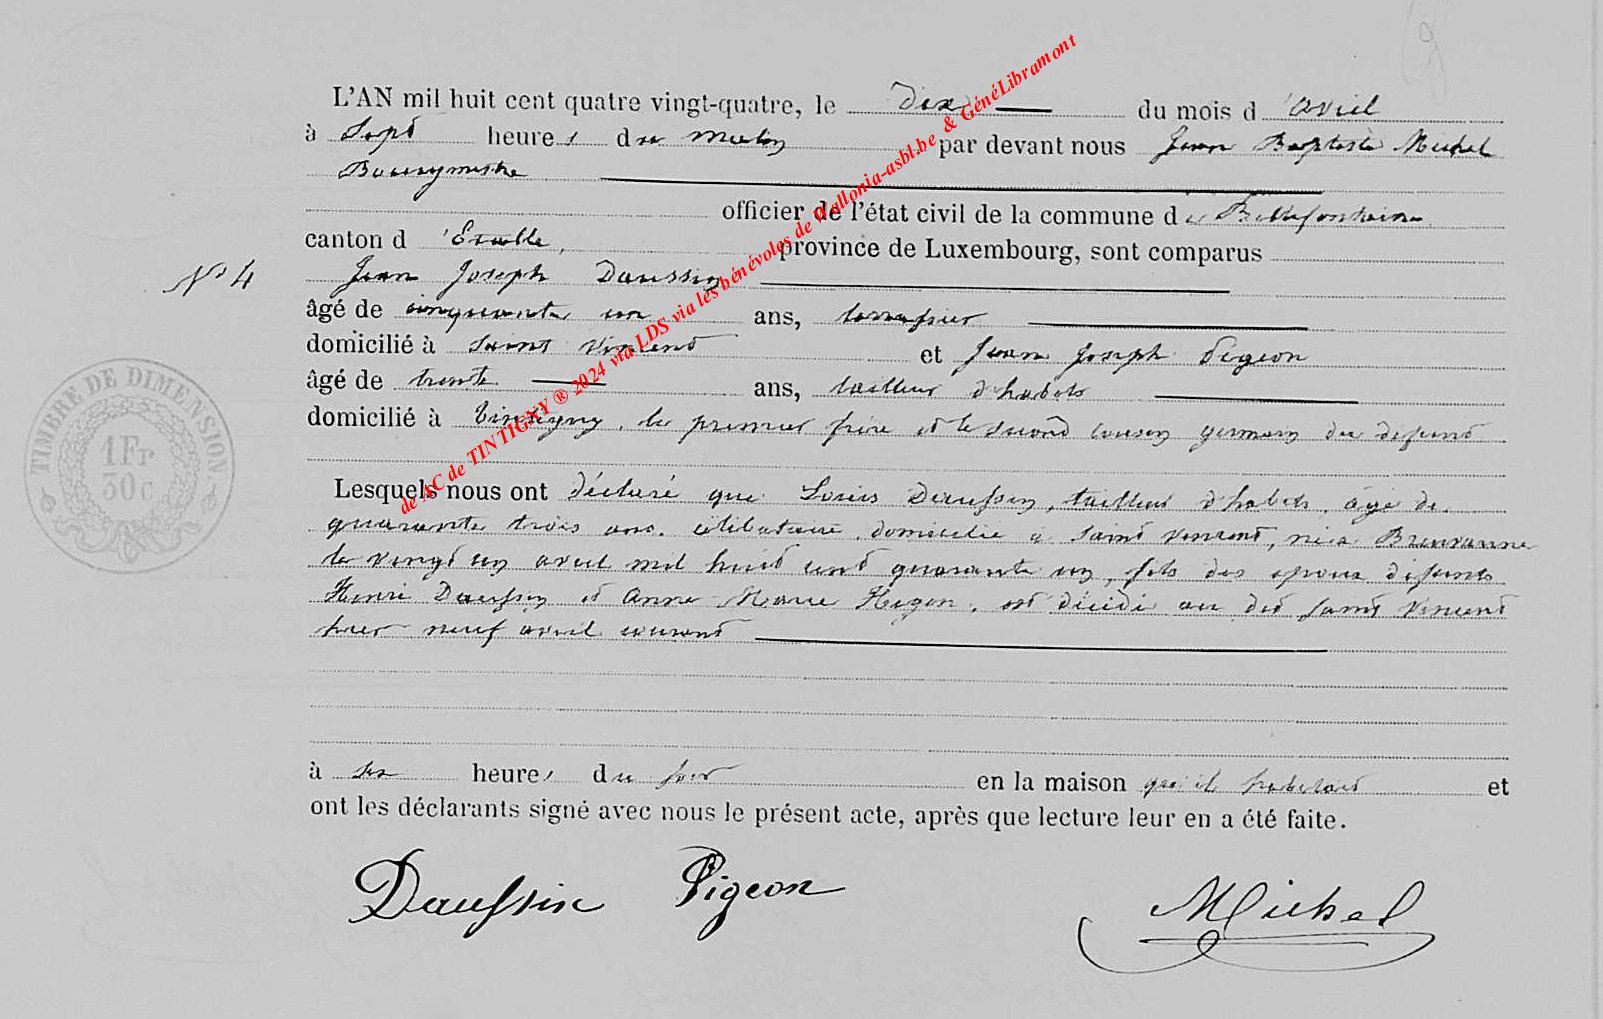 L'AN mil huit cent quatre vingt-quatre, le dix du mois d'avril
à Sept heures du matin par devant nous Jean Baptiste Michel
Bourgmestre
officier de l'état civil de la commune de Bellefontaine
canton d'Etalle, province de Luxembourg, sont comparus
N° 4 Jean Joseph Daussin
âgé de cinquante un ans,
domicilié à Saint Vincent et Jean Joseph Pigeon
âgé de trente ans, tailleur d'habits
domicilié à Tintigny, le premier frère et le second cousin germain du defunt
Lesquels nous ont déclaré que Louis Daussin, tailleur d'habits, âgé de
quarante trois ans, célibataire, domicilié a Saint Vincent, né a
le vingt un avril mil huit cent quarante un, fils des epoux défunts
Henri Daussin et Anne Marie est décédé au dit Saint Vincent
hier neuf avril courant
à six heures du soir en la maison qu'il habitait et
ont les déclarants signé avec nous le présent acte, après que lecture leur en a été faite.
Daussin Pigeon Michel
TIMBRE DE DIMENSION
1 Fr
30 c
de AC de TINTIGNY ® 2024 via LDS via les bénévoles de Wallonia-asbl.be & GénéLibramont